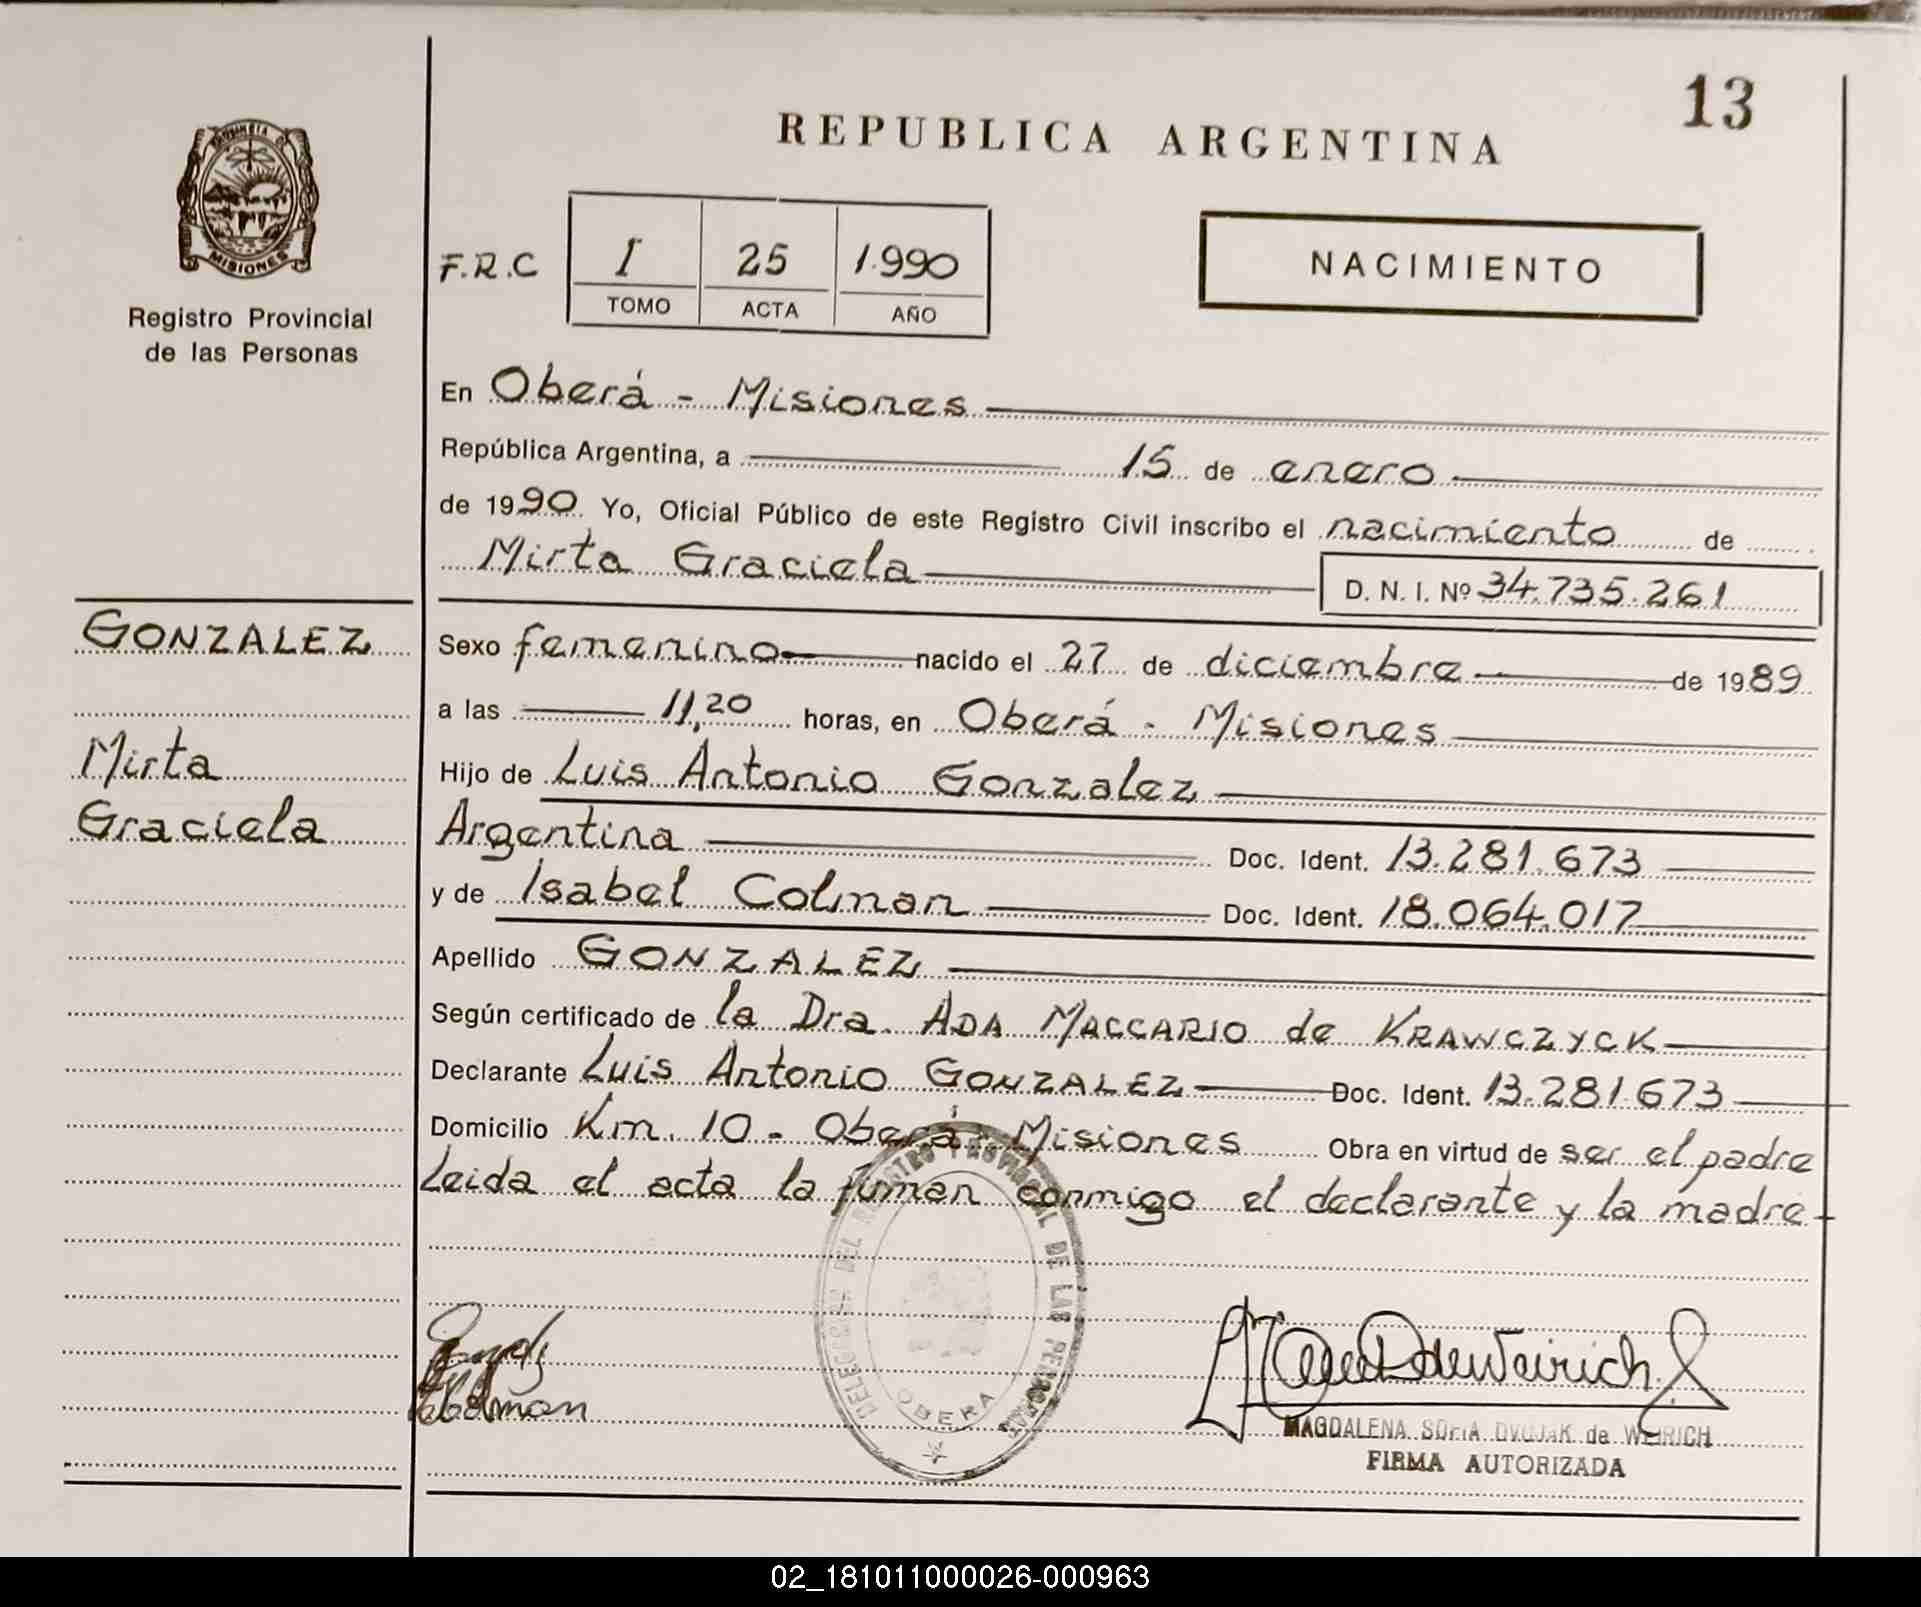 13
REPUBLICA ARGENTINA
PROVINCIA D
MISIONES
Registro Provincial
de las Personas
F.R.C I 25 1.990
TOMO ACTA AÑO
NACIMIENTO
En Oberá - Misiones
República Argentina, a 15 de enero
de 1990 Yo, Oficial Público de este Registro Civil inscribo el nacimiento de
Mirta Graciela D. N. I. Nº 34.735.261
GONZALEZ
Mirta
Graciela
Sexo femenino nacido el 27 de diciembre de 1989
a las 11,20 horas, en Oberá - Misiones
Hijo de Luis Antonio Gonzalez
Argentina Doc. Ident. 13.281.673
y de Isabel Colman Doc. Ident. 18.064.017
Apellido GONZALEZ
Según certificado de la Dra. ADA MACCARIO de KRAWCZYCK
Declarante Luis Antonio GONZALEZ Doc. Ident. 13.281.673
Domicilio Km. 10 - Oberá - Misiones Obra en virtud de ser el padre
Leida el acta la firman conmigo el declarante y la madre
DELEGACION DEL REGISTRO PROVINCIAL DE LAS PERSONAS
OBERA
Colman
MAGDALENA SOFIA DVOJAK de WEIRICH
FIRMA AUTORIZADA
02_181011000026-000963